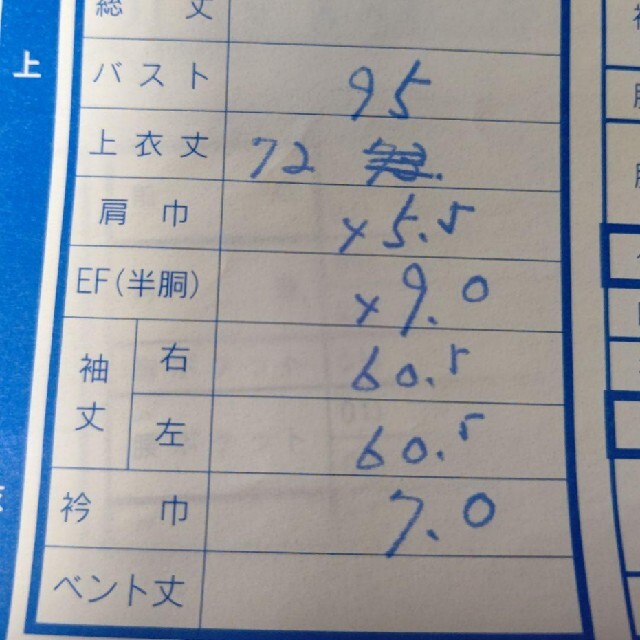 総 丈
上
バスト 95
上衣丈 72
肩巾 x5.5
EF(半胴) x9.0
袖丈 右 60.5
左 60.5
衿巾 7.0
ベント丈